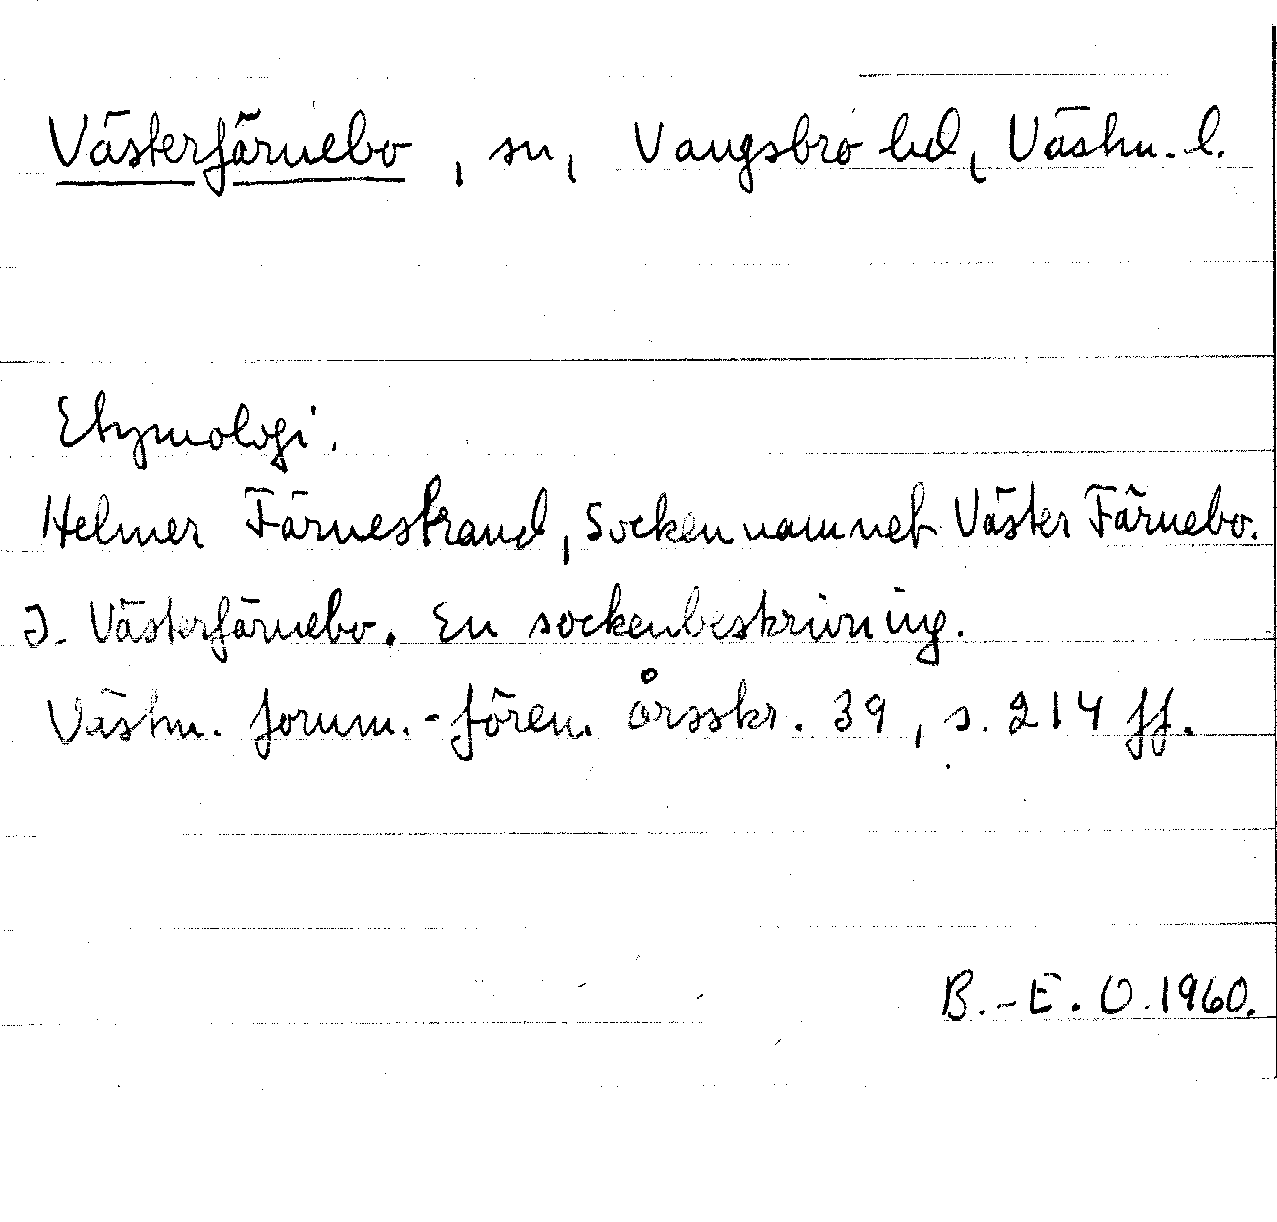 Västerfärnebo, sn, Vangsbro hd, Västm. l.
Etymologi.
Helmer Färnestrand, Sockennamnet Väster Färnebo.
I. Västerfärnebo. En sockenbeskrivning.
Västm. fornm.-fören. årsskr. 39, s. 214 ff.
B.-E. O. 1960.